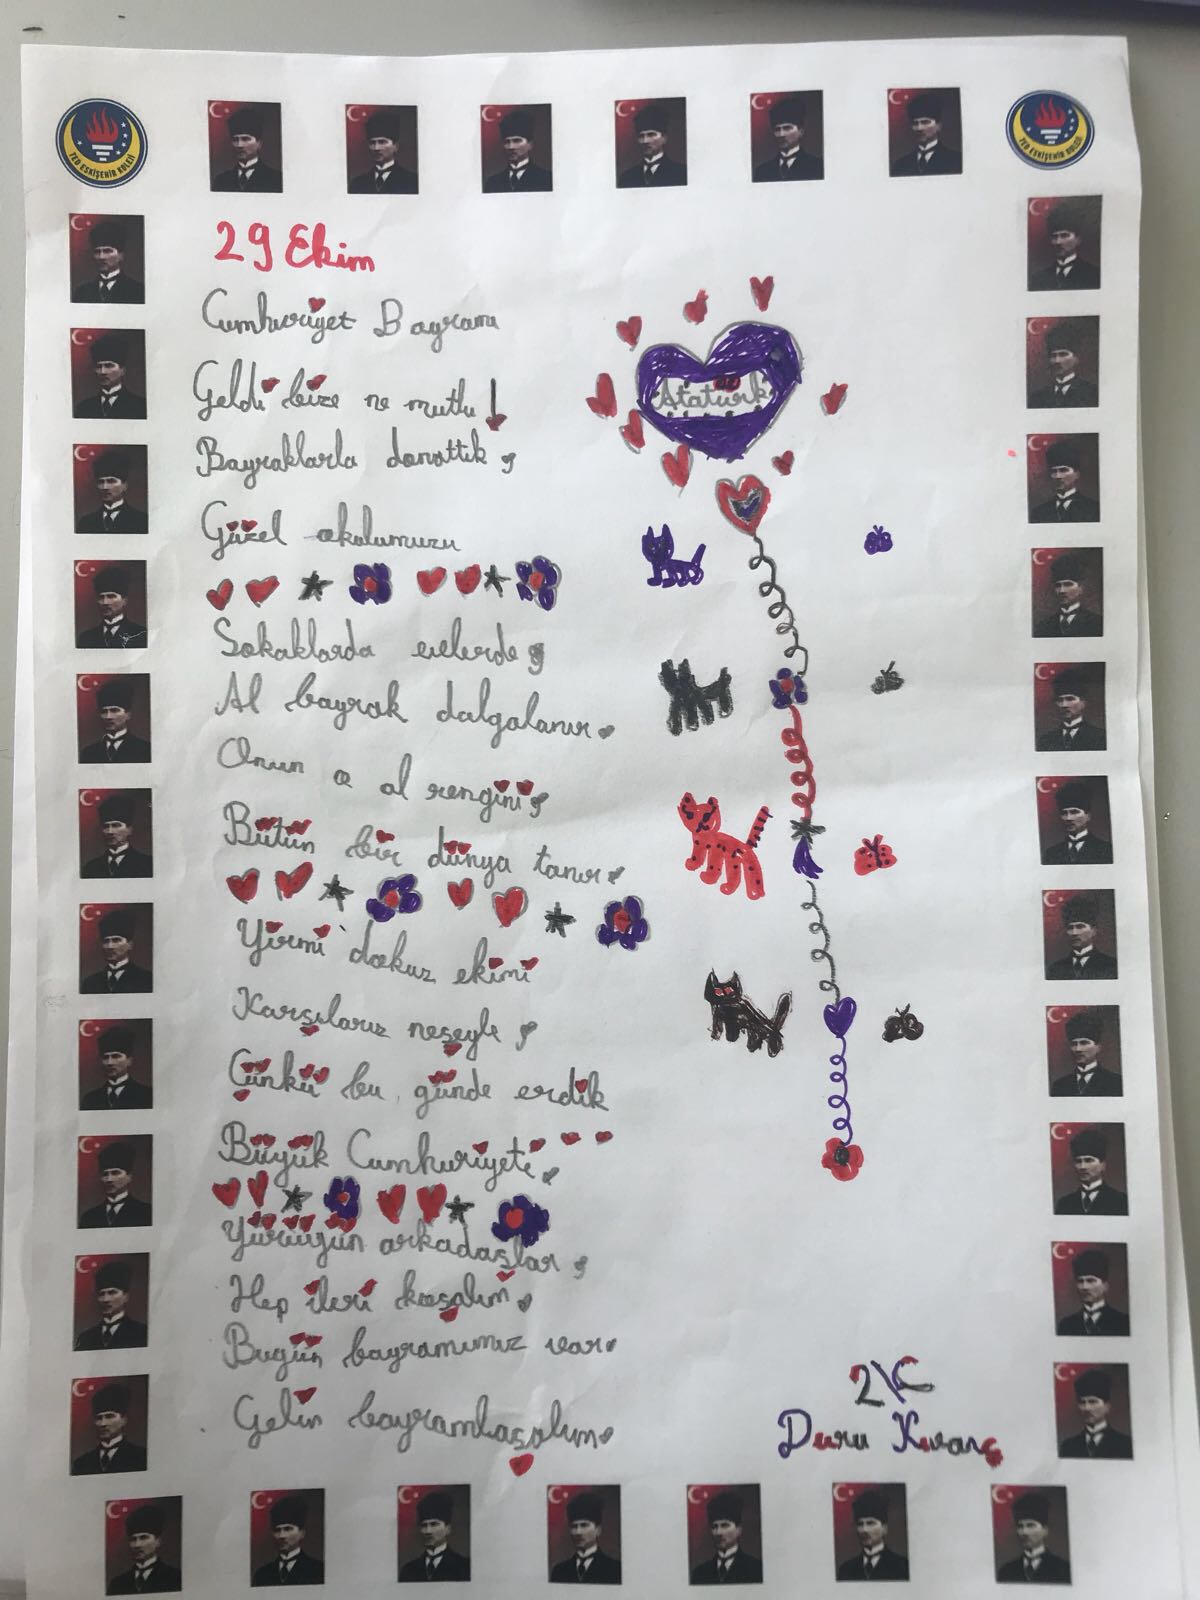 TED ESKİŞEHİR KOLEJİ
TED ESKİŞEHİR KOLEJİ
29 Ekim
Cumhuriyet Bayramı
Geldi bize ne mutlu!
Atatürk
Bayraklarla donattık,
Güzel okulumuzu
Sokaklarda evlerde,
Al bayrak dalgalanır.
Onun o al rengini,
Bütün bir dünya tanır.
Yirmi dokuz ekimi
Karşılarız neşeyle,
Çünkü bu günde erdik
Büyük Cumhuriyete.
Yürüyün arkadaşlar,
Hep ileri koşalım.
Bugün bayramımız var.
Gelin bayramlaşalım.
2/C
Duru Kıvanç